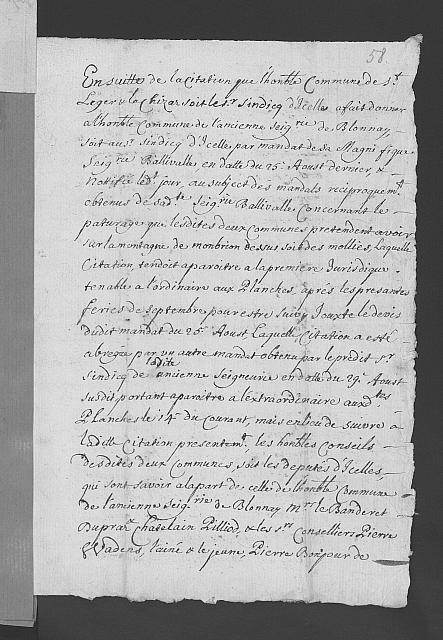 58.
En suitte de la citation que l'honble Commune de st
Leger & la Chiza soit le sr sindicq d'Icelle a fait donner
a l'honble Commune de l'ancienne seigrie de Blonnay
soit au sr sindicq d'Icelle, par mandat de sa Magnifique
Seigrie Ballivalle, en datte du 25e Aoust dernier, &
notifié ledt jour, au subject des mandats reciproquemt
obtenus de sadte seigrie Ballivalle concernant le
paturage que lesdites deux Communes pretendent avoir
sur la montagne de monbrion dessus soit des mollies, Laquelle
Citation, tendoit a paroitre a la premiere Juridique
tenable a l'ordinaire aux Planches, après les presantes
feries de septembre, pour estre suivy Jouxte le devis
dudit mandat du 25e Aoust, Laquelle Citation a esté
abregée par un autre mandat obtenu par le predit sr
sindicq de ladite ancienne seigneurie en datte du 29e Aoust
susdit portant a paroitre a l'extraordinaire auxdtes
Planches le 14e du Courant, mais en lieu de suivre a
laditte Citation presentemt les honbles Conseils
desdites deux Communes, soit les deputés d'Icelles,
qui sont savoir a la part de celle de l'honble Commune
de l'ancienne seigrie de Blonnay mr le Banderet
Dupraz Chatelain Pilliod, & les srs Conseilliers Pierre
Wadens, l'ainé & le jeune, Pierre Bonjour de